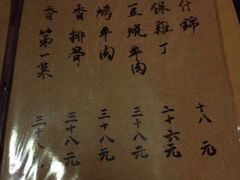 什錦 十八元
保雞丁 二十六元
豆燒牛肉 三十八元
烤牛肉 三十八元
香排骨 三十八元
香第一菜 三十八